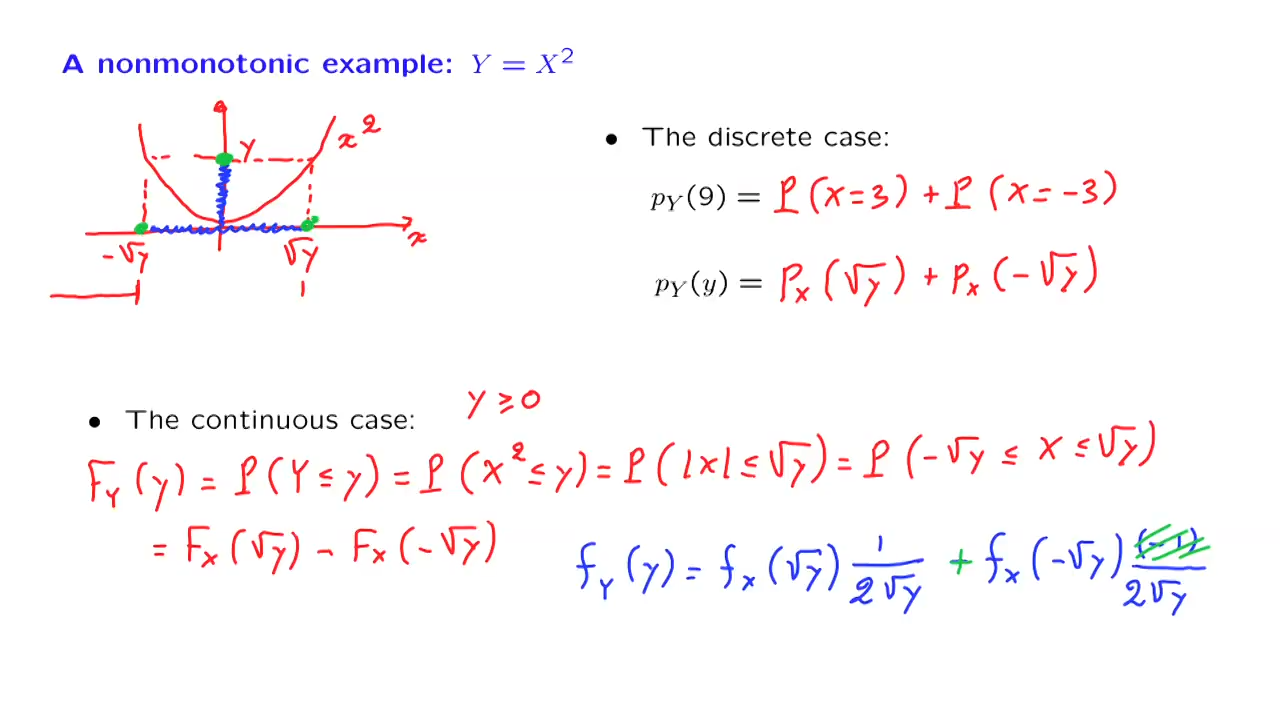 A nonmonotonic example: Y = X²
y
x²
x
-√y
√y
• The discrete case:
p_Y(9) = P(X=3) + P(X=-3)
p_Y(y) = p_X(√y) + p_X(-√y)
• The continuous case: y ≥ 0
F_Y(y) = P(Y ≤ y) = P(X² ≤ y) = P(|X| ≤ √y) = P(-√y ≤ X ≤ √y)
= F_X(√y) - F_X(-√y)
f_Y(y) = f_X(√y) 1/(2√y) + f_X(-√y) (-1)/(2√y)